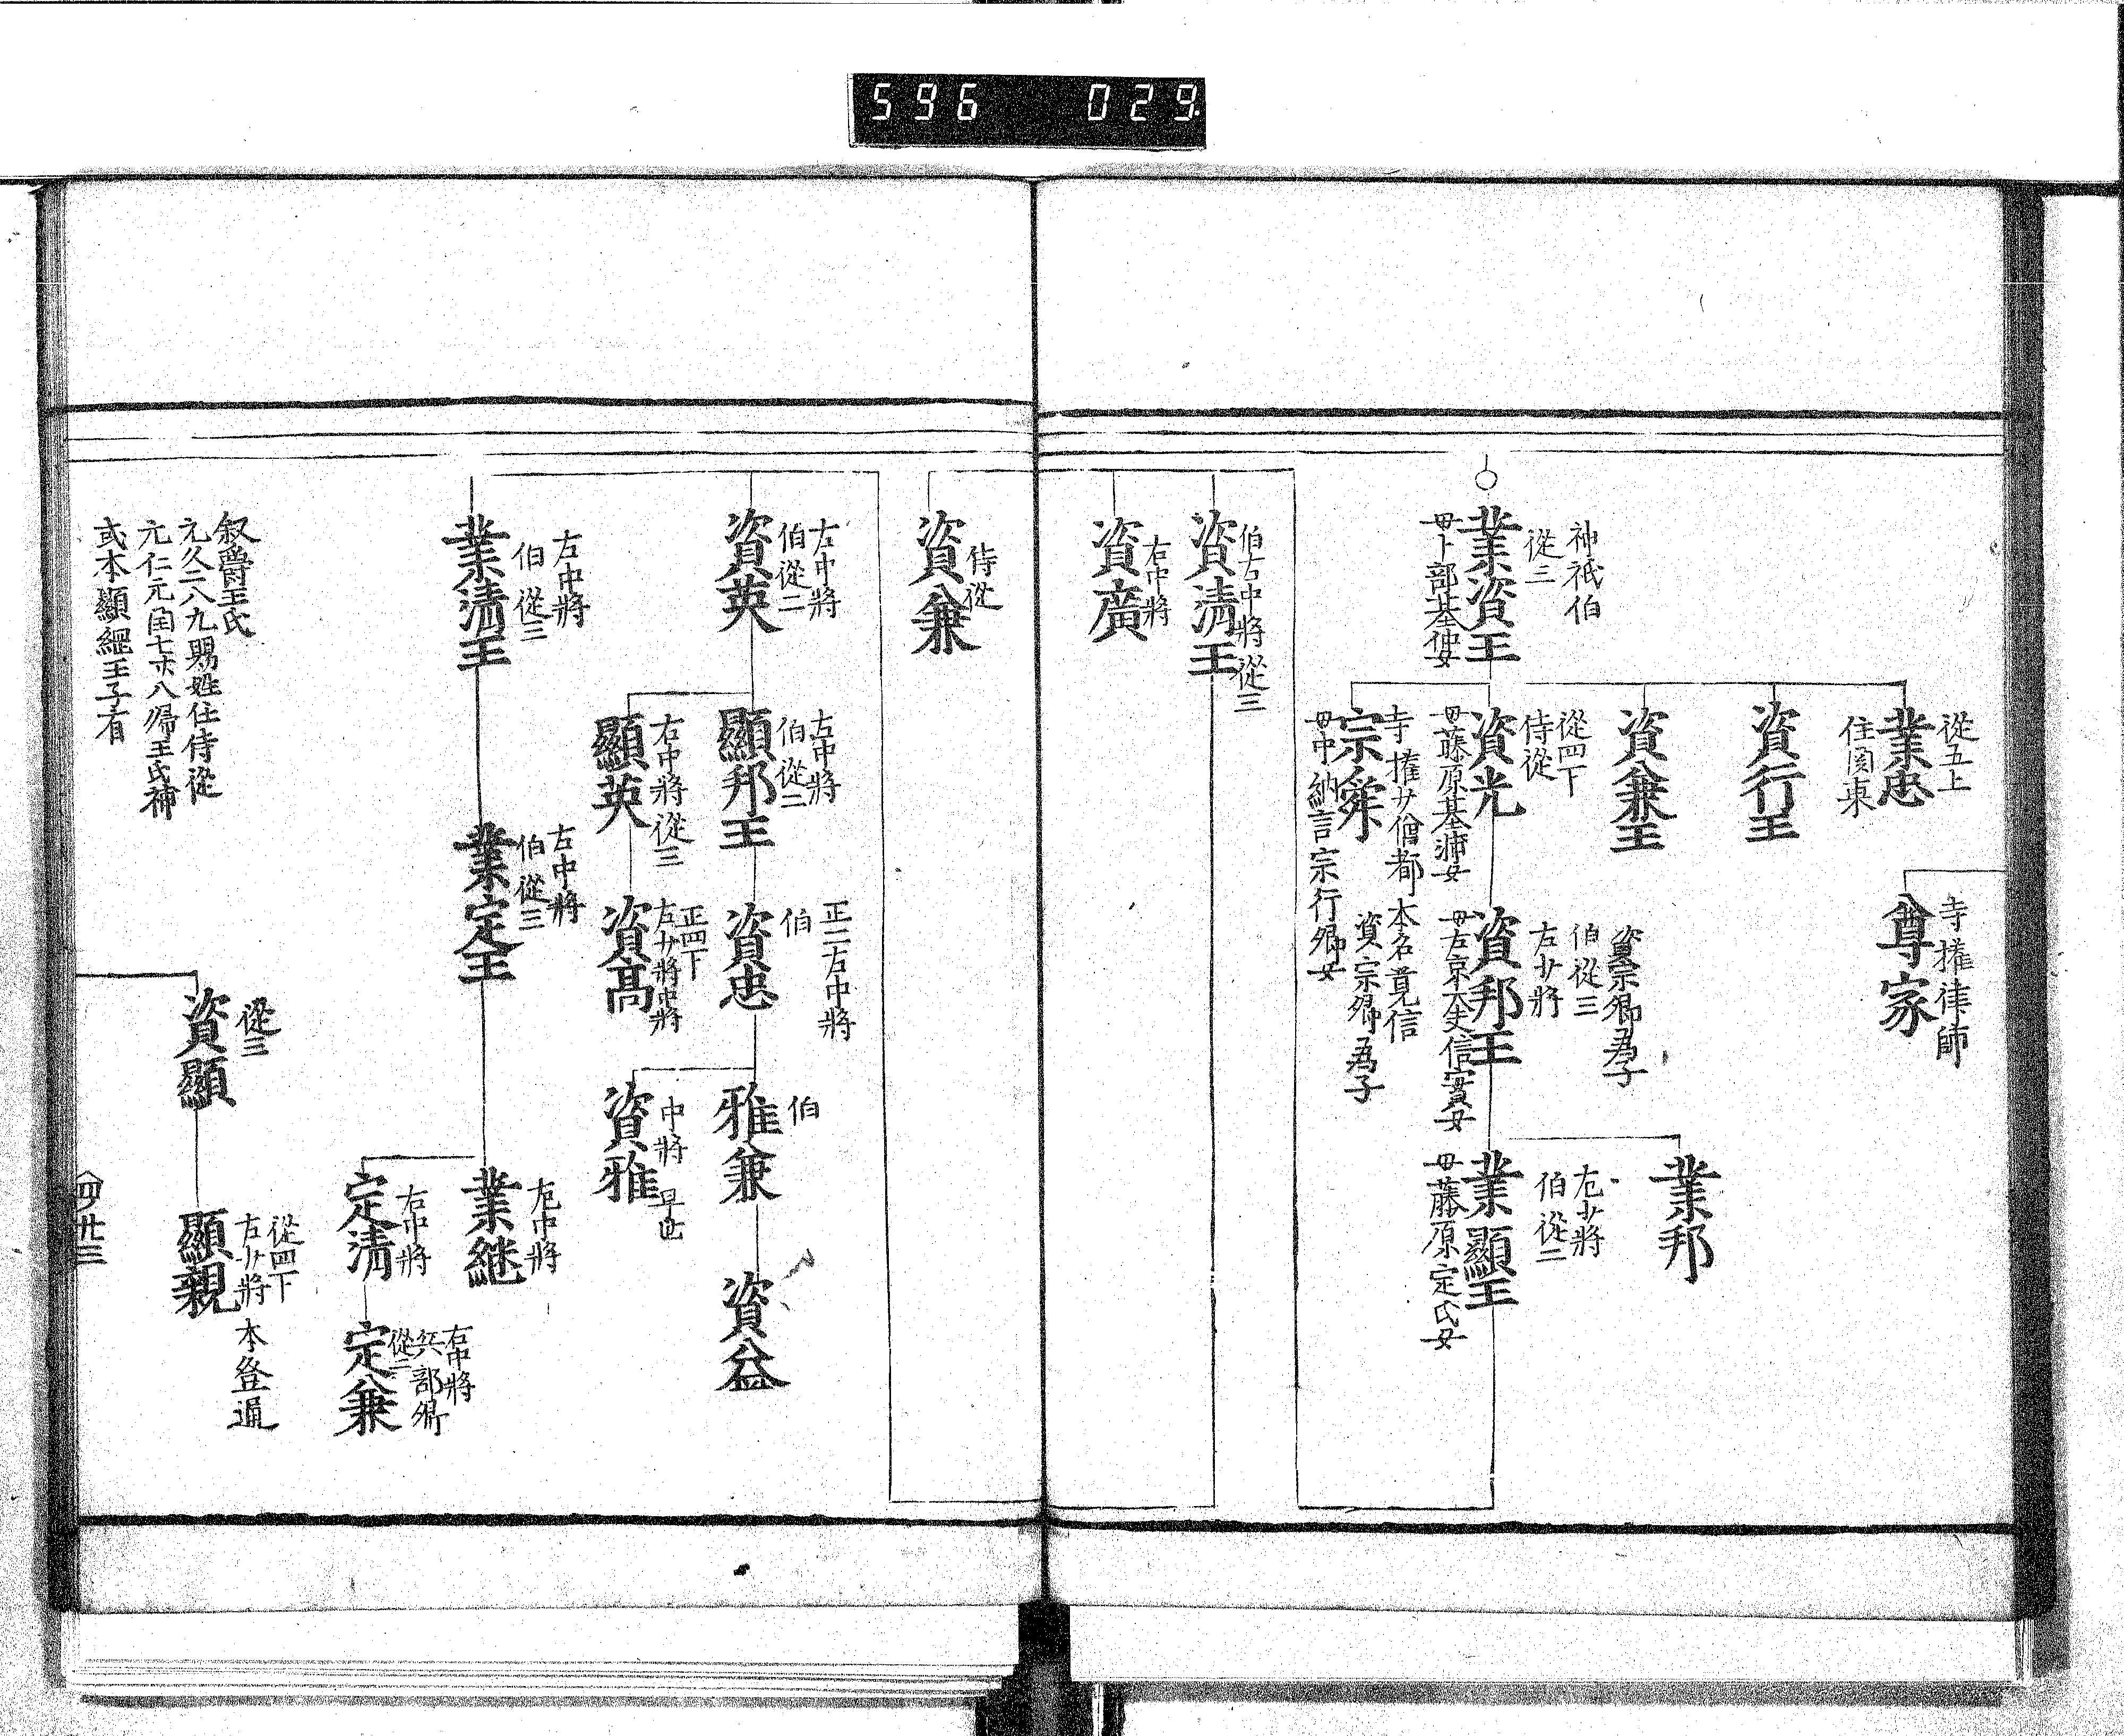 596 029
神祇伯
從三
業資王
母卜部基仲女
從五上
業忠
住関東
寺権律師
尊家
資行王
資兼王
從四下
侍從
資光
母藤原基浦女
寺権少僧都本名覚信
資宗卿為子
宗舜
母中納言宗行卿女
資宗卿為子
伯從三
左少將
資邦王
母右京大夫信實女
業邦
左少將
伯從二
業顯王
母藤原定氏女
伯右中將從三
資清王
右中將
資廣
侍從
資兼
右中將
伯從二
資英
左中將
伯從二
顯邦王
右中將從三
顯英
正二右中將
伯
資忠
正四下
左少將中將
資高
伯
雅兼
中將早世
資雅
資益
右中將
伯從三
業清王
右中將
伯從三
業定王
左中將
業継
右中將
定清
右中將
兵部卿
從二
定兼
叙爵王氏
元久二八九賜姓任侍從
元仁元閏七廿八帰王氏神
或本顯經王子有
從三
資顯
從四下
右少將本登通
顯親
四ノ廿三